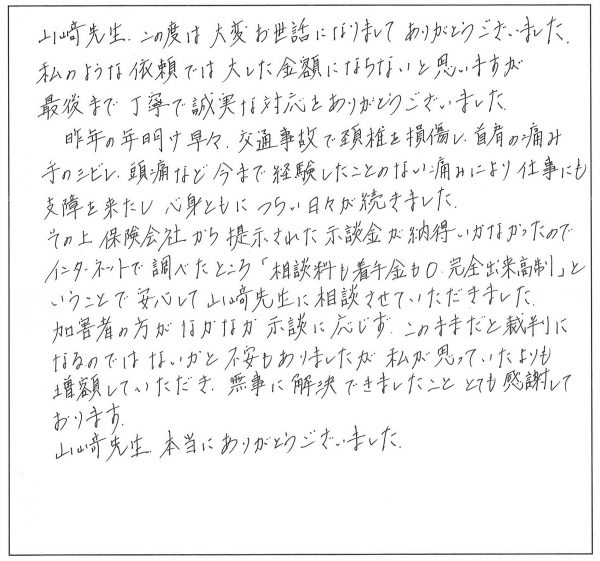 山﨑先生、この度は大変お世話になりましてありがとうございました。
私のような依頼では大した金額にならないと思いますが
最後まで丁寧で誠実な対応をありがとうございました。
昨年の年明け早々、交通事故で頚椎を損傷し、首肩の痛み
手のシビレ、頭痛など今まで経験したことのない痛みにより仕事にも
支障を来たし心身ともにつらい日々が続きました。
その上保険会社から提示された示談金が納得いかなかったので
インターネットで調べたところ「相談料も着手金も0、完全出来高制」と
いうことで安心して山﨑先生に相談させていただきました。
加害者の方がなかなか示談に応じず、このままだと裁判に
なるのではないかと不安もありましたが私が思っていたよりも
増額していただき、無事に解決できましたこととても感謝して
おります。
山﨑先生、本当にありがとうございました。